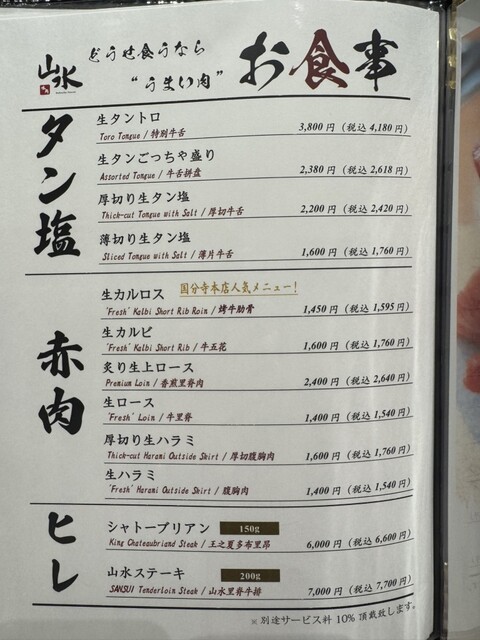 山水
どうせ食うなら
“うまい肉”
お食事
タン塩
生タントロ
Toro Tongue / 特別牛舌
3,800 円 (税込 4,180 円)
生タンごっちゃ盛り
Assorted Tongue / 牛舌拼盘
2,380 円 (税込 2,618 円)
厚切り生タン塩
Thick-cut Tongue with Salt / 厚切牛舌
2,200 円 (税込 2,420 円)
薄切り生タン塩
Sliced Tongue with Salt / 薄片牛舌
1,600 円 (税込 1,760 円)
赤肉
生カルロス 国分寺本店人気メニュー!
"Fresh" Kalbi Short Rib Roin / 烤牛肋骨
1,450 円 (税込 1,595 円)
生カルビ
"Fresh" Kalbi Short Rib / 牛五花
1,600 円 (税込 1,760 円)
炙り生上ロース
Premium Loin / 香煎里脊肉
2,400 円 (税込 2,640 円)
生ロース
"Fresh" Loin / 牛里脊
1,400 円 (税込 1,540 円)
厚切り生ハラミ
Thick-cut Harami Outside Skirt / 厚切腹胸肉
1,600 円 (税込 1,760 円)
生ハラミ
"Fresh" Harami Outside Skirt / 腹胸肉
1,400 円 (税込 1,540 円)
ヒレ
シャトーブリアン 150g
King Chateaubriand Steak / 王之夏多布里昂
6,000 円 (税込 6,600 円)
山水ステーキ 200g
SANSUI Tenderloin Steak / 山水里脊牛排
7,000 円 (税込 7,700 円)
※ 別途サービス料 10% 頂戴致します。